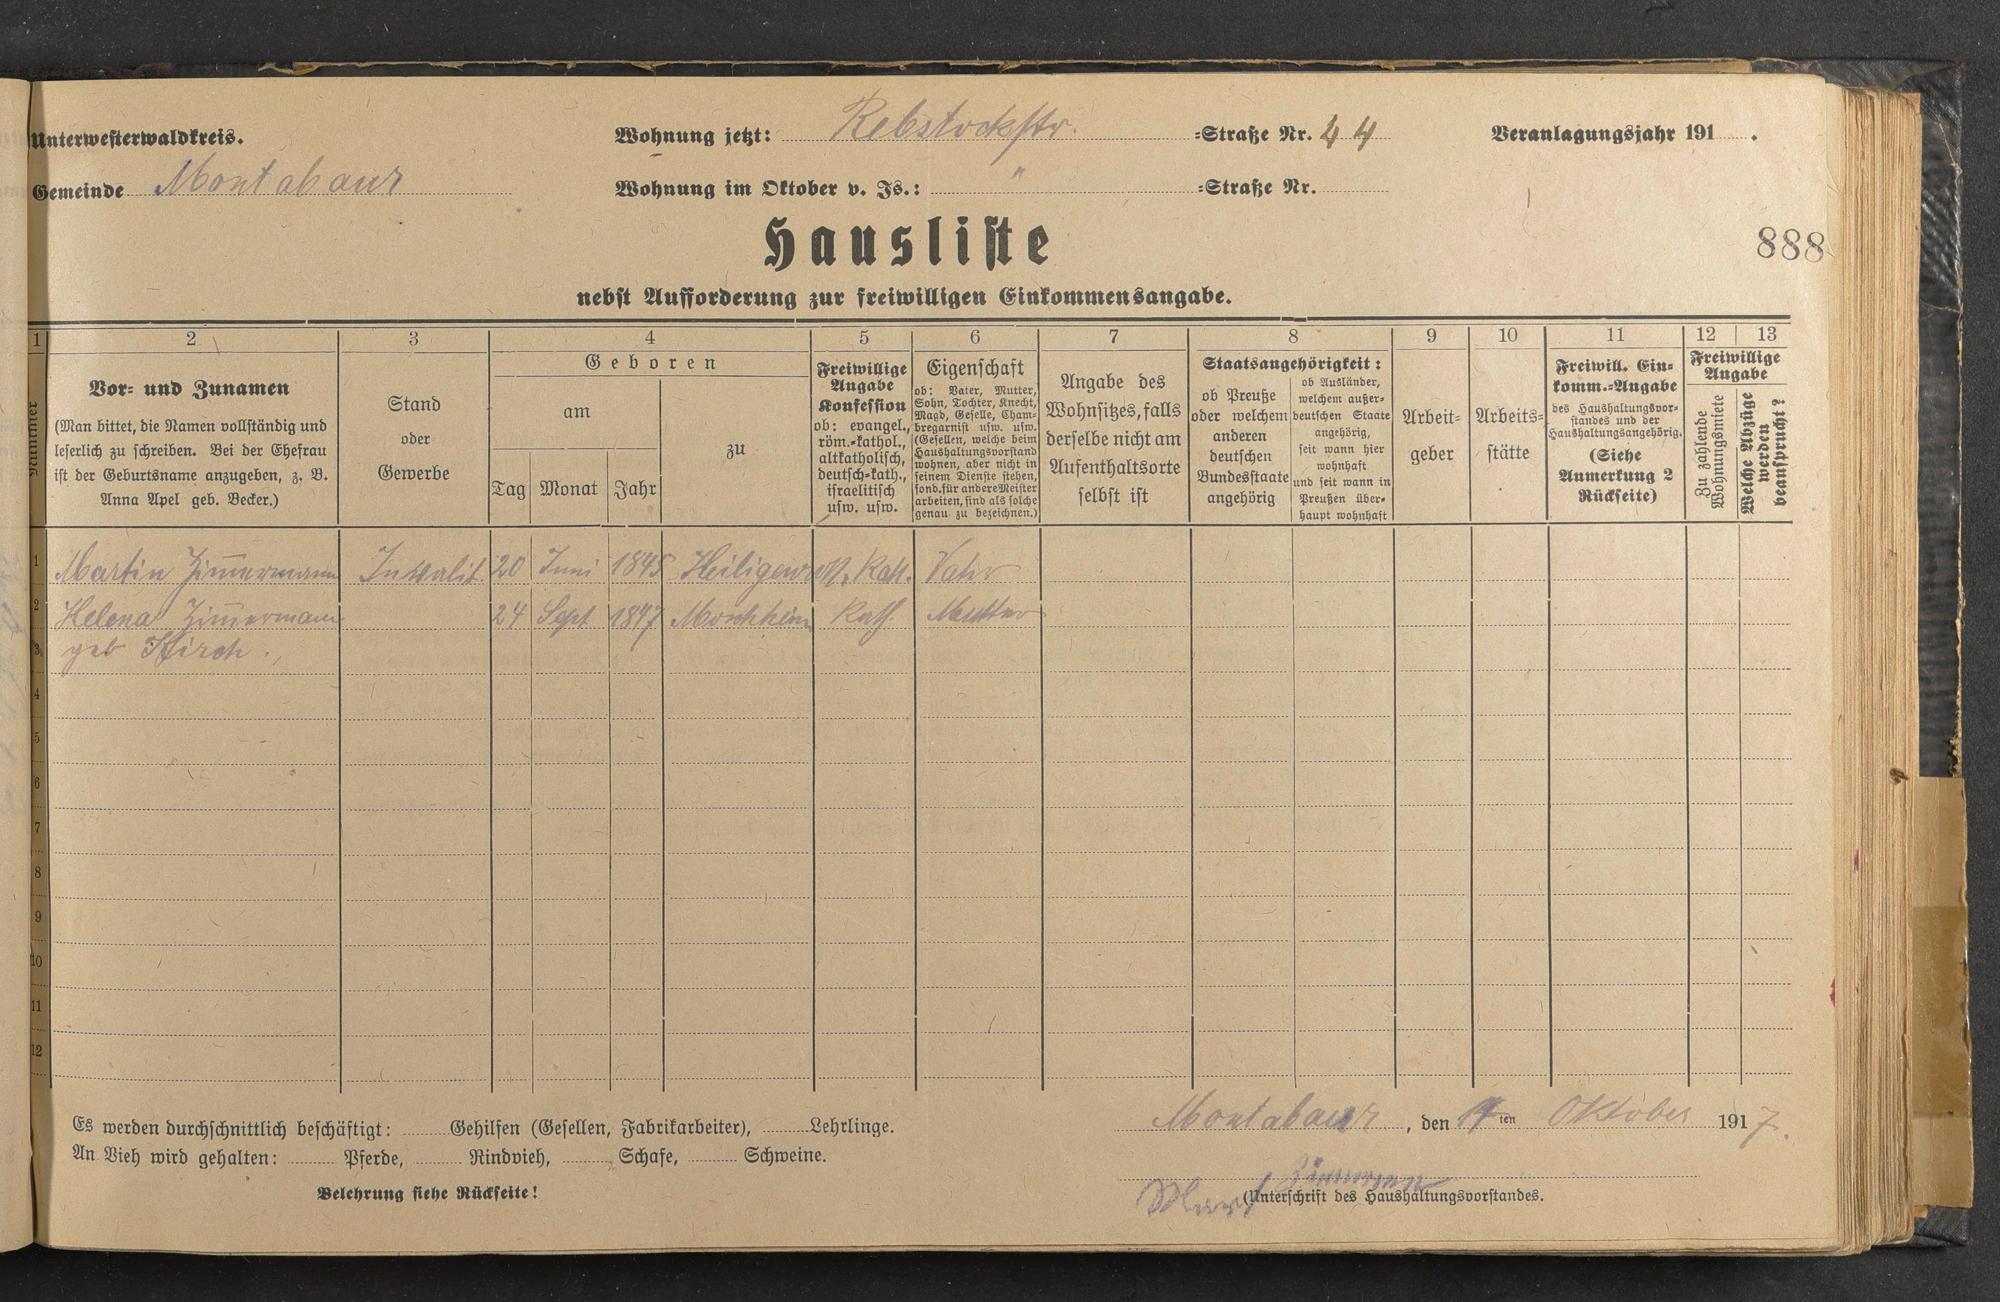 Unterwesterwaldkreis.
Wohnung jetzt: Rebstockstr. =Straße Nr. 44
Veranlagungsjahr 191 .
Gemeinde Montabaur
Wohnung im Oktober v. Js.: " =Straße Nr.
Hausliste
888
nebst Aufforderung zur freiwilligen Einkommensangabe.
1 2 3 4 5 6 7 8 9 10 11 12 13
Nummer
Vor- und Zunamen
(Man bittet, die Namen vollständig und
leserlich zu schreiben. Bei der Ehefrau
ist der Geburtsname anzugeben, z. B.
Anna Apel geb. Becker.)
Stand
oder
Gewerbe
Geboren
am
Tag Monat Jahr
zu
Freiwillige
Angabe
Konfession
ob: evangel.,
röm.-kathol.,
altkatholisch,
deutsch-kath.,
israelitisch
usw. usw.
Eigenschaft
ob: Vater, Mutter,
Sohn, Tochter, Knecht,
Magd, Geselle, Cham-
bregarnist usw. usw.
(Gesellen, welche beim
Haushaltungsvorstand
wohnen, aber nicht in
seinem Dienste stehen,
sond. für andere Meister
arbeiten, sind als solche
genau zu bezeichnen.)
Angabe des
Wohnsitzes, falls
derselbe nicht am
Aufenthaltsorte
selbst ist
Staatsangehörigkeit:
ob Preuße
oder welchem
anderen
deutschen
Bundesstaate
angehörig
ob Ausländer,
welchem außer-
deutschen Staate
angehörig,
seit wann hier
wohnhaft
und seit wann in
Preußen über-
haupt wohnhaft
Arbeit-
geber
Arbeits-
stätte
Freiwill. Ein-
komm.-Angabe
des Haushaltungsvor-
standes und der
Haushaltungsangehörig.
(Siehe
Anmerkung 2
Rückseite)
Freiwillige
Angabe
Zu zahlende
Wohnungsmiete
Welche Abzüge
werden
beansprucht?
1 Martin Zimmermann Invalit 20 Juni 1845 Kath. Vater
2 Helena Zimmermann 24 Sept 1847 Kath. Mutter
3 geb
4
5
6
7
8
9
10
11
12
Es werden durchschnittlich beschäftigt: Gehilfen (Gesellen, Fabrikarbeiter), Lehrlinge.
Montabaur, den ten Oktober 1917.
An Vieh wird gehalten: Pferde, Rindvieh, Schafe, Schweine.
Belehrung siehe Rückseite!
(Unterschrift des Haushaltungsvorstandes.